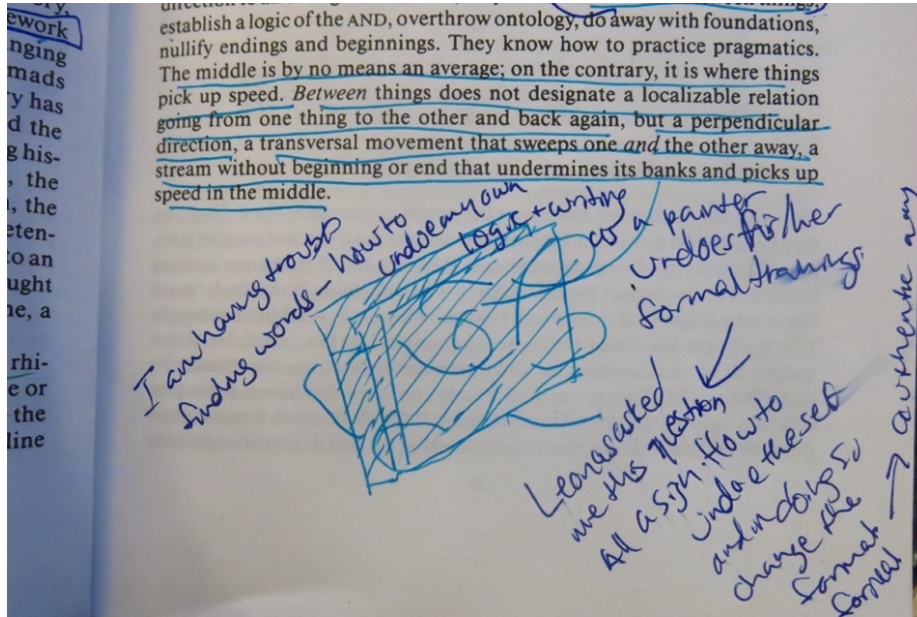 ework
nging
mads
y has
d the
g his-
, the
, the
eten-
o an
ught
ne, a
rhi-
e or
the
line
establish a logic of the AND, overthrow ontology, do away with foundations,
nullify endings and beginnings. They know how to practice pragmatics.
The middle is by no means an average; on the contrary, it is where things
pick up speed. Between things does not designate a localizable relation
going from one thing to the other and back again, but a perpendicular
direction, a transversal movement that sweeps one and the other away, a
stream without beginning or end that undermines its banks and picks up
speed in the middle.
I am having trouble
finding words – how to
undoe my own
logic + writing
as a painter
undoes his/her
formal trainings
asked
me this question
All a sign. How to
undoe the self
and in doing so
change the
format
formal
→ authentic